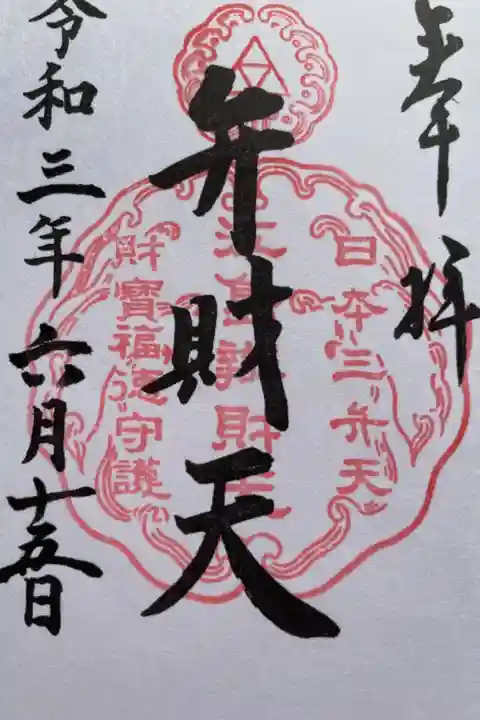 奉拝
日本三弁天
江島辯財天
弁財天
財寶福徳守護
令和三年六月十五日